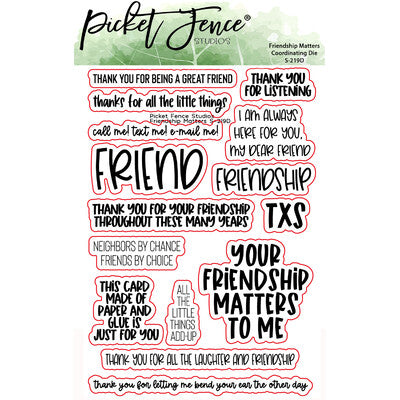 Picket Fence®
STUDIOS
Friendship Matters
Coordinating Die
S-219D
THANK YOU FOR BEING A GREAT FRIEND
THANK YOU
FOR LISTENING
thanks for all the little things
Picket Fence Studios
Friendship Matters S-219D
call me! text me! e-mail me!
I AM ALWAYS
HERE FOR YOU,
MY DEAR FRIEND
FRIEND
FRIENDSHIP
THANK YOU FOR YOUR FRIENDSHIP
THROUGHOUT THESE MANY YEARS
TXS
NEIGHBORS BY CHANCE
FRIENDS BY CHOICE
YOUR
FRIENDSHIP
MATTERS
TO ME
THIS CARD
MADE OF
PAPER AND
GLUE IS
JUST FOR YOU
ALL
THE
LITTLE
THINGS
ADD-UP
THANK YOU FOR ALL THE LAUGHTER AND FRIENDSHIP
thank you for letting me bend your ear the other day